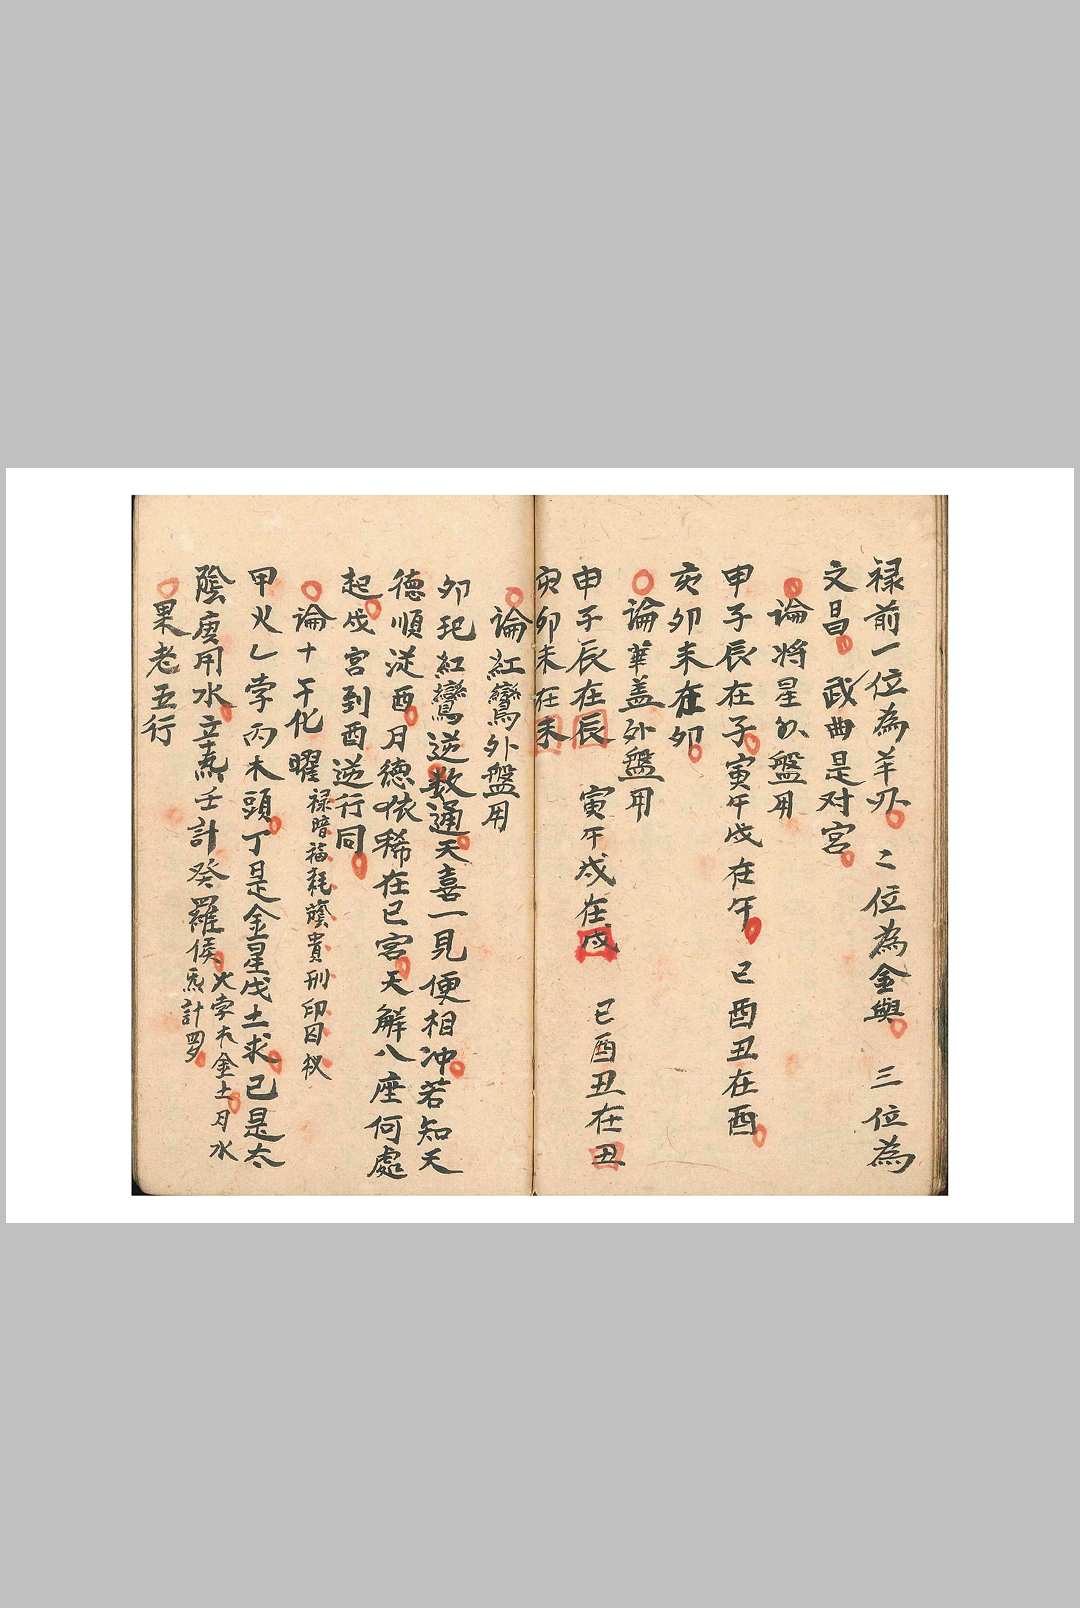 禄前一位為羊刃 二位為金輿 三位為
文昌 武曲是对宮
論将星外盤用
甲子辰在子寅午戌在午 巳酉丑在酉
亥卯未在卯
論華盖外盤用
申子辰在辰 寅午戌在戌 巳酉丑在丑
亥卯未在未
論紅鸞外盤用
卯起紅鸞逆数通天喜一見便相冲若知天
德順従酉月德依稀在巳宮天解八座何處
起戌宮到酉逆行同
論十干化曜禄暗福耗蔭貴刑印囚权
甲火乙孛丙木頭丁是金星戊土求己是太
陰庚用水辛炁壬計癸羅侯火孛木金土月水
炁計罗
果老五行